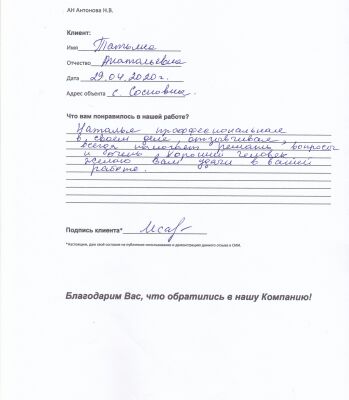 АН Антонова Н.В.
Клиент:
Имя Татьяна
Отчество Анатольевна
Дата 29.04.2020г.
Адрес объекта с. Сосновка.
Что вам понравилось в нашей работе?
Наталья профессиональна
в своем деле, отзывчивая,
всегда помогает решать вопросы
и очень хороший человек
желаю Вам удачи в вашей
работе.
Подпись клиента*
*Настоящим, даю своё согласие на публичное использование и демонстрацию данного отзыва в СМИ.
Благодарим Вас, что обратились в нашу Компанию!